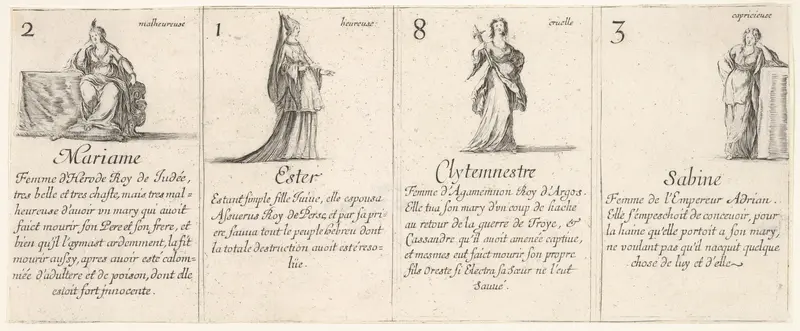 2
malheureuse
Mariame
Femme d'Herode Roy de Iudée,
tres belle et tres chaste, mais tres mal=
heureuse d'avoir vn mary qui auoit
faict mourir son Pere et son frere, et
bien qu'il l'aymast ardemment, la fit
mourir aussy, apres auoir esté calom=
niée d'adultere et de poison, dont elle
estoit fort innocente.
1
heureuse
Ester
Estant simple fille Iuiue, elle espousa
Assuerus Roy de Perse, et par sa pri=
ere sauua tout le peuple hebreu dont
la totale destruction auoit esté reso=
lüe.
8
cruelle
Clytemnestre
Femme d'Agamemnon Roy d'Argos.
Elle tua son mary d'vn coup de hache
au retour de la guerre de Troye, &
Cassandre qu'il auoit amenée captiue,
et mesmes eut faict mourir son propre
fils Oreste si Electra sa Seur ne l'eut
Sauué.
3
capricieuse
Sabine
Femme de l'Empereur Adrian.
Elle s'empeschoit de conceuoir, pour
la haine qu'elle portoit a son mary,
ne voulant pas qu'il nacquit quelque
chose de luy et d'elle